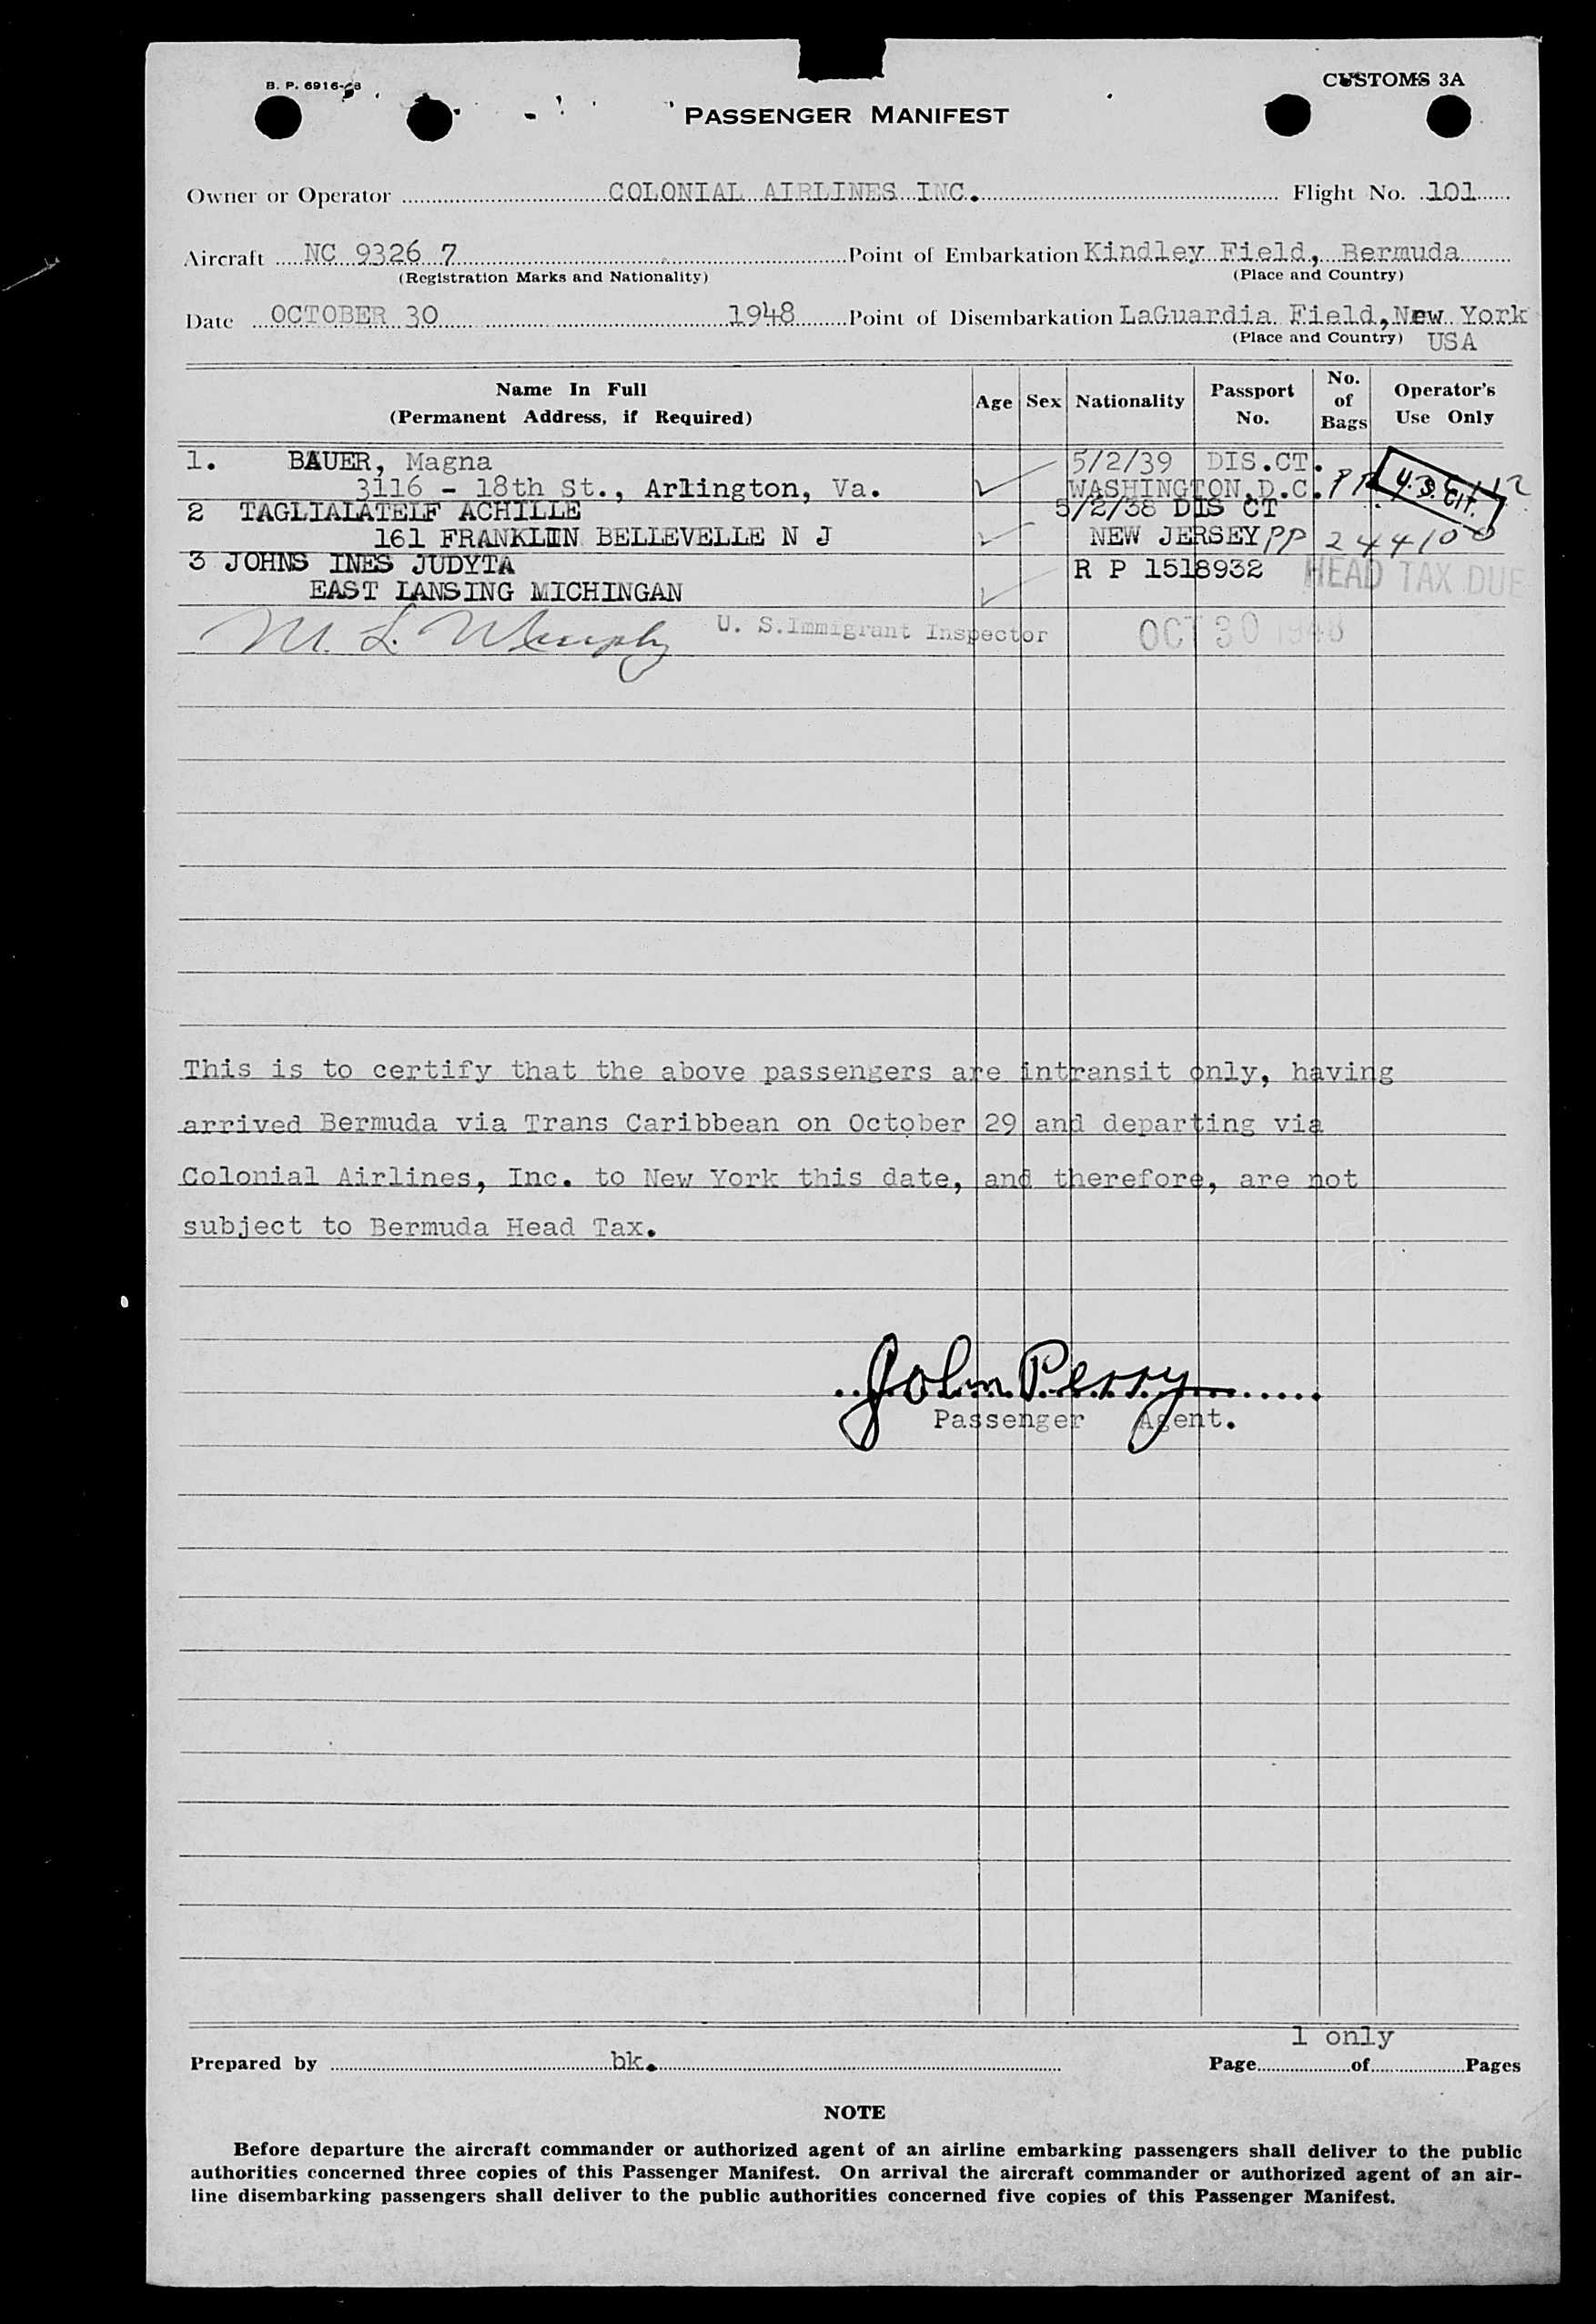 B. P. 6916-48
CUSTOMS 3A
PASSENGER MANIFEST
Owner or Operator COLONIAL AIRLINES INC. Flight No. 101
Aircraft NC 9326 7 Point of Embarkation Kindley Field, Bermuda
(Registration Marks and Nationality) (Place and Country)
Date OCTOBER 30 1948 Point of Disembarkation LaGuardia Field, New York
(Place and Country) USA
Name In Full (Permanent Address, if Required) Age Sex Nationality Passport No. No. of Bags Operator's Use Only
1. BAUER, Magna 5/2/39 DIS.CT.
3116 - 18th St., Arlington, Va. WASHINGTON, D.C. PP U.S. CIT.
2 TAGLIALATEIF ACHILLE 5/2/38 DIS CT
161 FRANKLIN BELLEVELLE N J NEW JERSEY PP 244100
3 JOHNS INES JUDYTA R P 1518932 HEAD TAX DUE
EAST LANSING MICHINGAN
M. L. U. S. Immigrant Inspector OCT 30 1948
This is to certify that the above passengers are intransit only, having
arrived Bermuda via Trans Caribbean on October 29 and departing via
Colonial Airlines, Inc. to New York this date, and therefore, are not
subject to Bermuda Head Tax.
John Perry
Passenger Agent.
1 only
Prepared by bk. Page of Pages
NOTE
Before departure the aircraft commander or authorized agent of an airline embarking passengers shall deliver to the public
authorities concerned three copies of this Passenger Manifest. On arrival the aircraft commander or authorized agent of an air-
line disembarking passengers shall deliver to the public authorities concerned five copies of this Passenger Manifest.